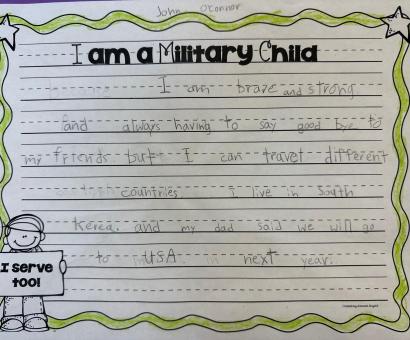 John O'Connor
I am a Military Child
I am brave and strong
and always having to say good bye to
my friends but I can travel different
countries i live in South
Korea. and my dad said we will go
to USA in next year.
I serve
too!